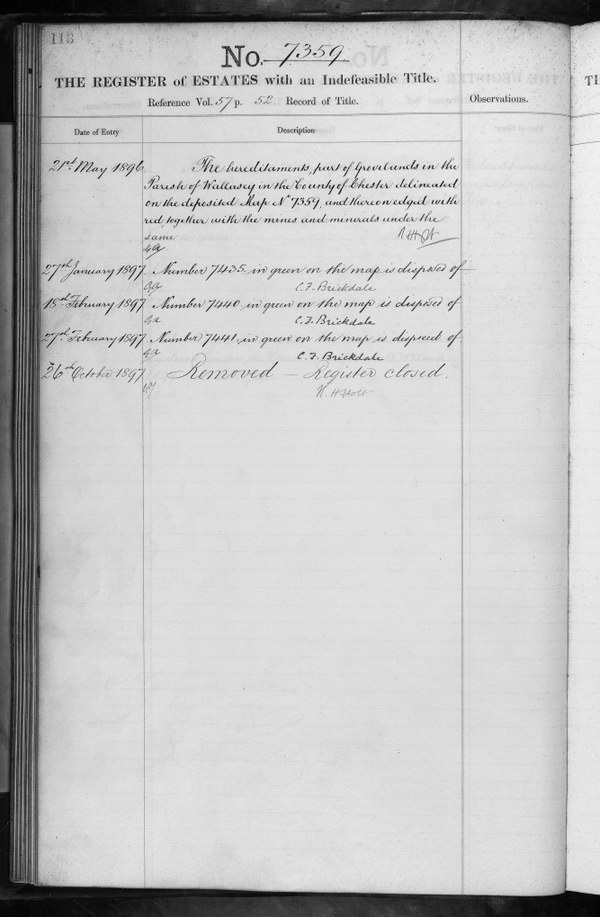 113
No. 7359
THE REGISTER of ESTATES with an Indefeasible Title.
Reference Vol. 57 p. 52 Record of Title.
Observations.
Date of Entry
Description
21st May 1896
The hereditaments, part of Grovelands in the
Parish of Wallasey in the County of Chester delineated
on the deposited Map No 7359, and thereon edged with
red, together with the mines and minerals under the
same
27th January 1897 Number 7435 in green on the map is disposed of
C.F. Brickdale
18th February 1897 Number 7440 in green on the map is disposed of
C.F. Brickdale
27th February 1897 Number 7441 in green on the map is disposed of
C.F. Brickdale
26th October 1897 Removed — Register closed.
TH